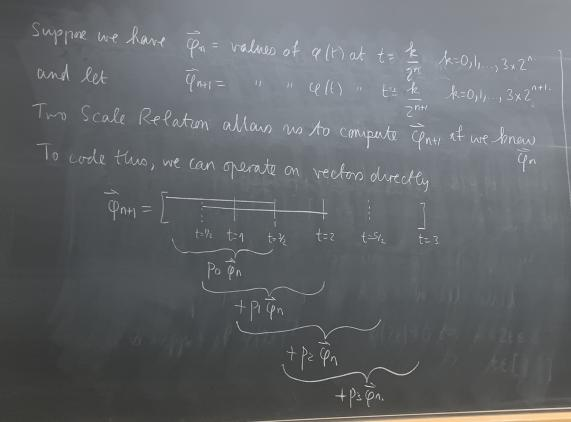 Suppose we have φ⃗n = values of φ(t) at t = k/2^n k=0,1,..., 3×2^n.
and let φ⃗n+1 = " " φ(t) " t= k/2^(n+1) k=0,1,..., 3×2^(n+1).
Two Scale Relation allows us to compute φ⃗n+1 if we knew φ⃗n
To code this, we can operate on vectors directly
φ⃗n+1 = [ ]
t=1/2 t=1 t=3/2 t=2 t=5/2 t=3
p0 φ⃗n
+ p1 φ⃗n
+ p2 φ⃗n
+ p3 φ⃗n.